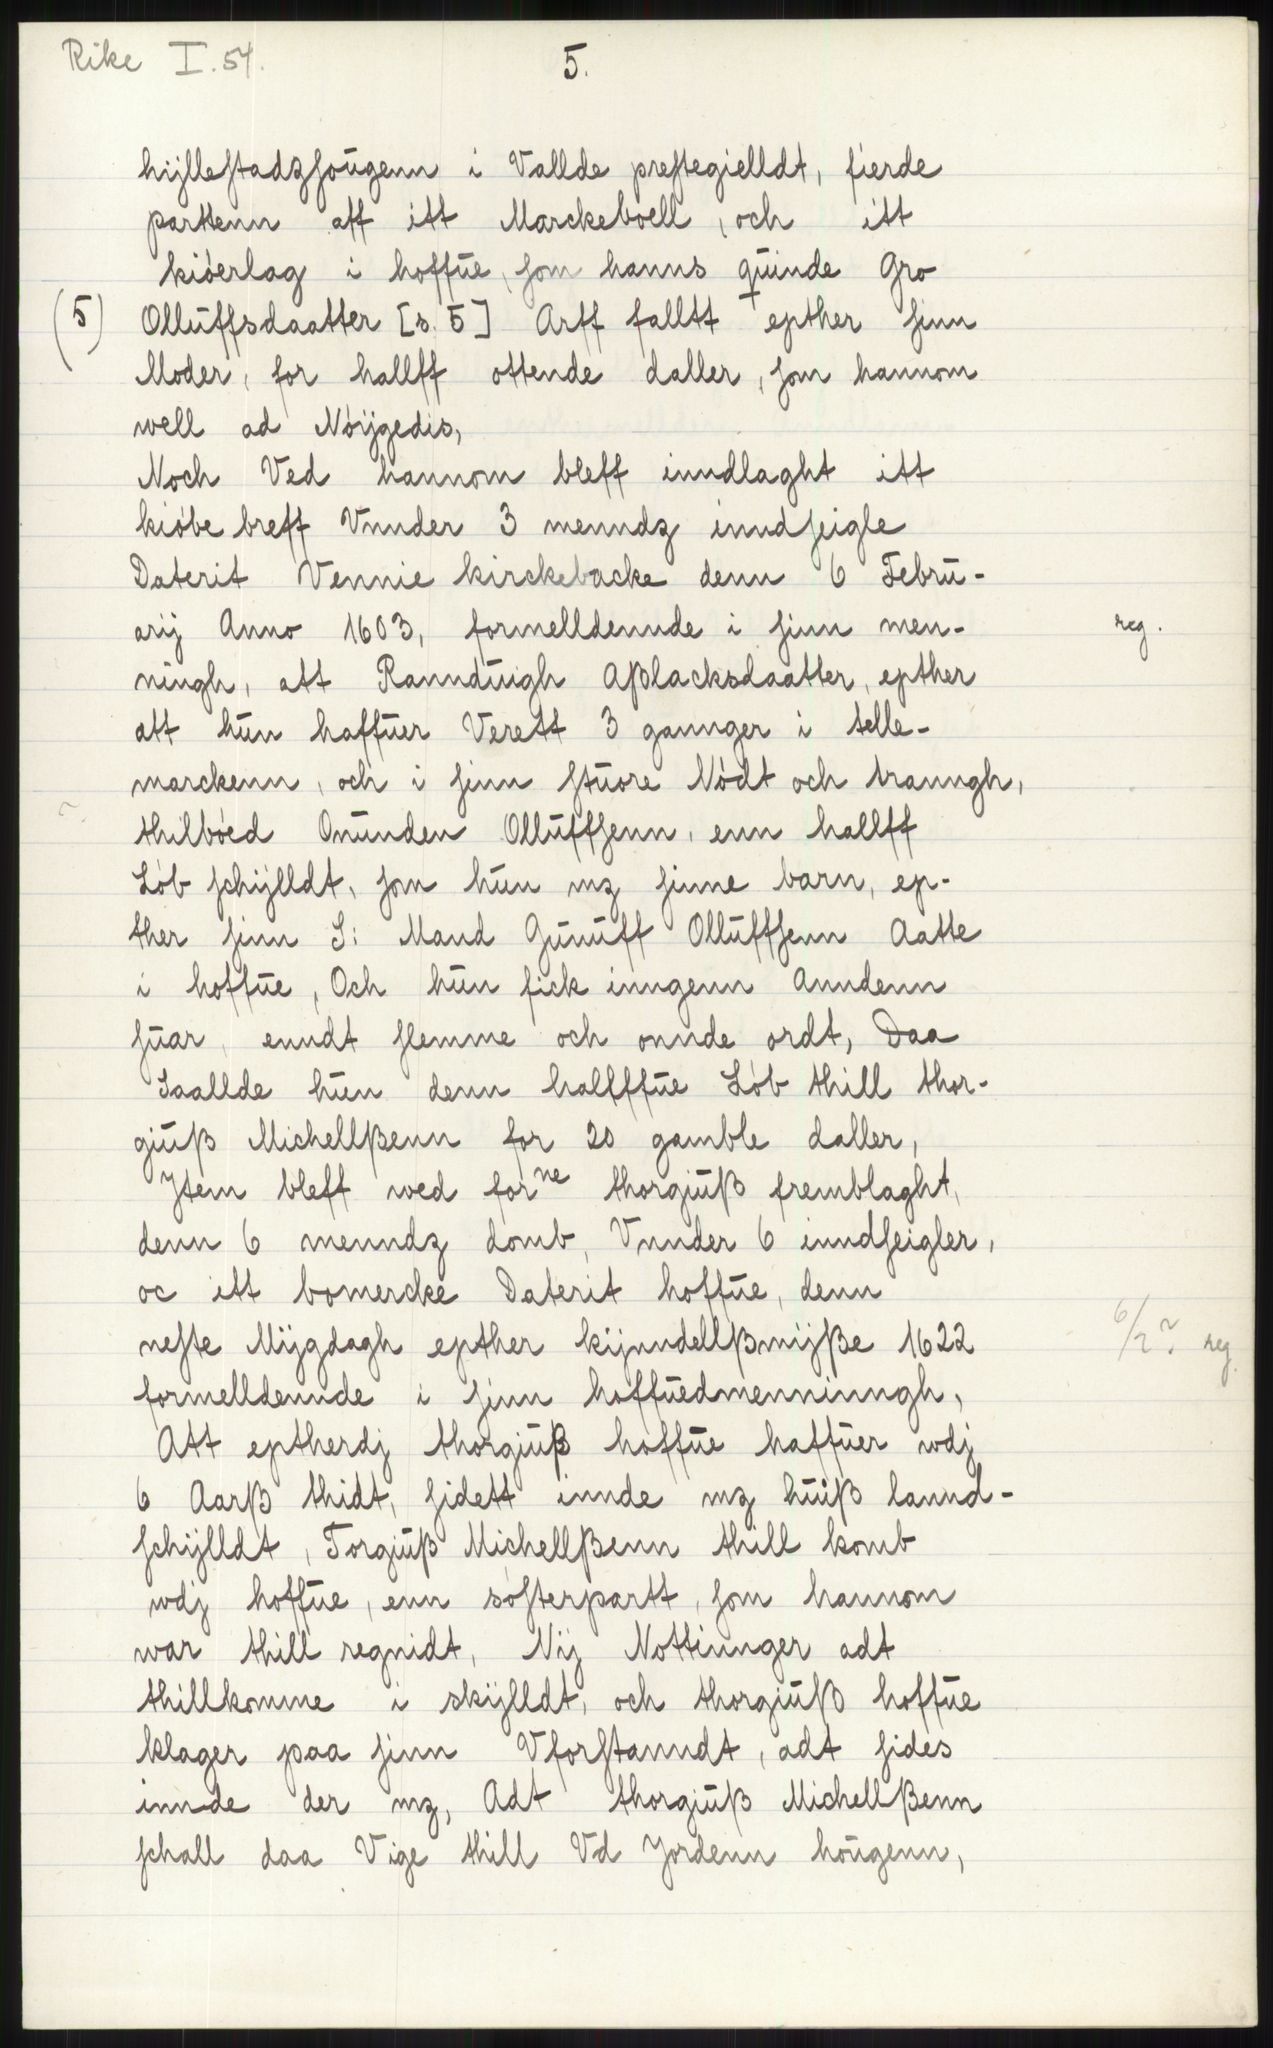 Rike I. 54.
5.
hijllestadzsougenn i Vallde prestegielldt, fierde
parttenn aff itt Marckeboell, och itt
kiöerlag i hoffue, som hanns quinde Gro
(5) Olluffsdaatter [s. 5] Arff falltt epther sinn
Moder, for hallff ottende daller, som hannom
well ad Nöijgedis,
Noch Ved hannom bleff inndlaght itt
kiöbe breff Vnnder 3 menndz inndseigle
Daterit Vennie kirckebacke denn 6 Febru-
arij Anno 1603, formelldennde i sinn men- reg.
ningh, att Rannduigh Aßlacksdaatter, epther
att hun haffuer Verett 3 gannger i telle-
marckenn, och i sinn stuore Nödt och tranngh,
thilböed Onunden Olluffsenn, enn hallff
Löb schijlldt, som hun mz sinne barn, ep-
ther sinn S: Mand Gunuff Olluffsenn Aatte
i hoffue, Och hun fick inngenn Anndenn
suar, enndt slemme och onnde ordt, Daa
Saallde hun denn hallfffue Löb thill thor-
giuß Michellßenn for 20 gamble daller,
Jtem bleff wed forne thorgiuß fremblaght,
denn 6 menndz domb, Vnnder 6 inndseigler,
oc itt bomercke Daterit hoffue, denn
neste Mijgdagh epther kijnndellßmijße 1622 6/2? reg.
formelldennde i sinn hoffuedmenninngh,
Att eptherdj thorgiuß hoffue haffuer wdj
6 Aarß thidt, sidett innde mz huiß lannd-
schijlldt, Torgiuß Michellßenn thill komb
wdj hoffue, enn söfterpartt, som hannom
war thill regnidt, Nij Nottinnger adt
thillkomme i skijlldt, och thorgiuß hoffue
klager paa sinn Vforstanndt, adt sides
innde der mz, Adt thorgiuß Michellßenn
schall daa Vige thill Vd Jordenn hougenn,